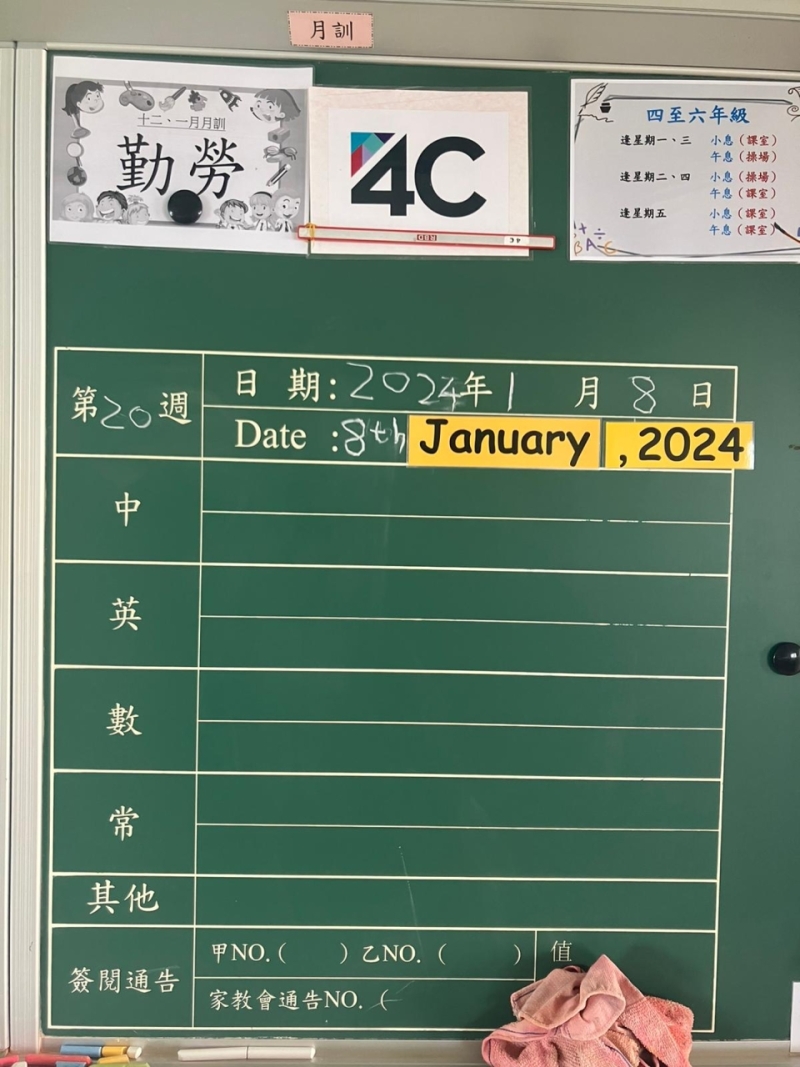 月訓
十二、一月月訓
勤勞
4C
四至六年級
逢星期一、三 小息（課室）
午息（操場）
逢星期二、四 小息（操場）
午息（課室）
逢星期五 小息（課室）
午息（課室）
第20週
日期:2024年1月8日
Date :8th January , 2024
中
英
數
常
其他
簽閱通告
甲NO.( ) 乙NO. ( )
值
家教會通告NO. (